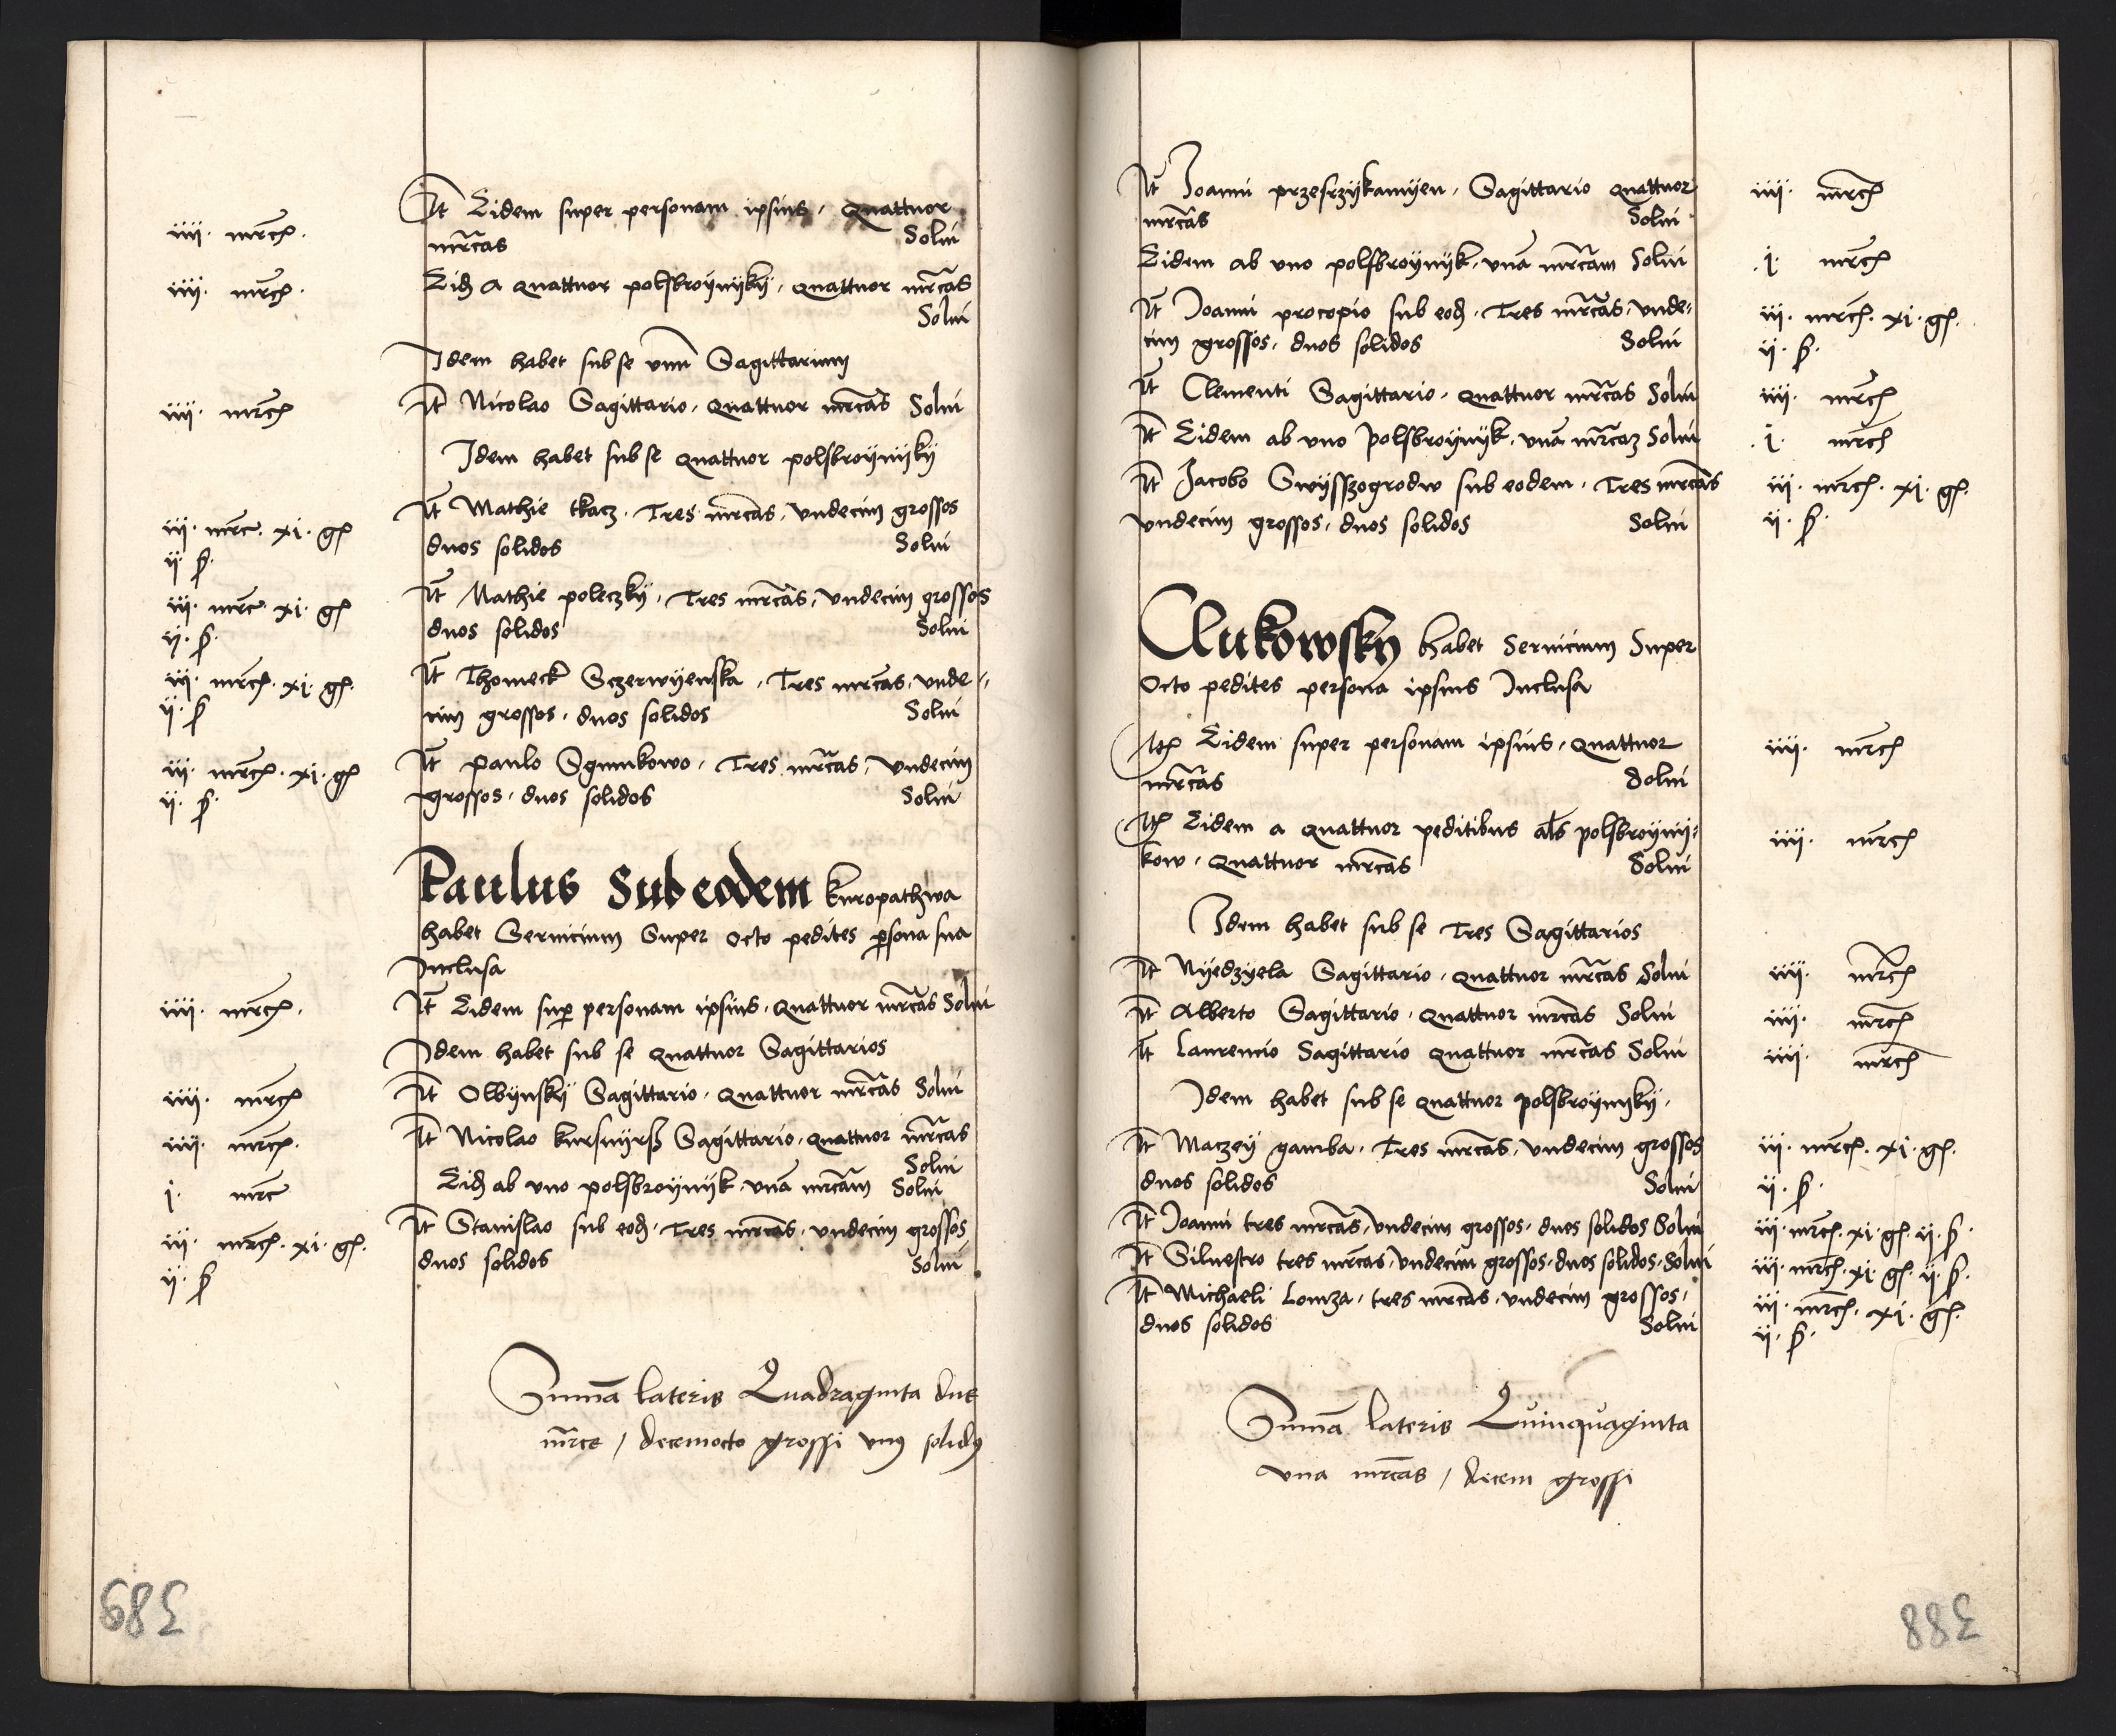 iiij. mrcẹ. It Eidem super personam ipsius, Quattuor
mrcas Solui
iiij. mrcẹ. Eidẹ a Quattuor polsbroynyky, Quattuor mrcas
Solui
Idem habet sub se vnũ Sagittarium
iiij. mrcẹ It Nicolao Sagittario, Quattuor mrcas Solui
Idem habet sub se Quattuor polsbroynyky
iij. mrc. xi. gẹ It Mathie tkacz. Tres mrcas, vndecim grossos
ij. ꝑ. duos solidos Solui
iij. mrc xi. gẹ It Mathie poleczky, Tres mrcas, vndecim grossos
ij. ꝑ. duos solidos Solui
iij. mrcẹ. xi. gẹ. It Thomeck Sczerwyenska, Tres mrcas, vnde-
ij. ꝑ cim grossos, duos solidos Solui
iij. mrcẹ. xi. gẹ It paulo Sgunikowo, Tres mrcas, vndecim
ij. ꝑ. grossos, duos solidos Solui
Paulus Sub eodem kuropathwa
habet Seruicium Super octo pedites ꝑsona sua
Inclusa
iiij. mrcẹ. It Eidem suꝑ personam ipsius, Quattuor mrcas Solui
Idem habet sub se Quattuor Sagittarios
iiij. mrcẹ It Olbynsky Sagittario, Quattuor mrcas Solui
iiij. mrcẹ. It Nicolao Sagittario, Quattuor mrcas
Solui
j. mrc Eidẹ ab vno polsbroynyk, vnã mrcam Solui
iij. mrcẹ. xi. gẹ. It Stanislao sub eodẹ, Tres mrcas, vndecim grossos
ij. ꝑ duos solidos Solui
Summa lateris Quadraginta due
mrce / decemocto grossi vnus solidus
389
It Joanni przesrzykamyen, Sagittario Quattuor iiij. mrcẹ
mrcas Solui
Eidem ab vno polsbroynyk, vnã mrcam Solui .j. mrcẹ
It Joanni procopio sub eodẹ. Tres mrcas, vnde- iij. mrcẹ. xi. gẹ.
cim grossos, duos solidos Solui ij. ꝑ.
It Clementi Sagittario, Quattuor mrcas Solui iiij. mrcẹ
It Eidem ab vno Polsbroynyk, vnã mrcaz Solui .j. mrcẹ
It Jacobo Swysszogrodw sub eodem. Tres mrcas iij. mrcẹ. xi. gẹ.
vndecim grossos, duos solidos Solui ij. ꝑ.
Clukowsky habet Seruicium Super
Octo pedites persona ipsius Inclusa
Itẹ Eidem super personam ipsius, Quattuor iiij. mrcẹ
mrcas Solui
Itẹ Eidem a Quattuor peditibus als polsbroyny- iiij. mrcẹ
kow, Quattuor mrcas Solui
Idem habet sub se Tres Sagittarios
It Nyedzyela Sagittario, Quattuor mrcas Solui iiij. mrcẹ
It Alberto Sagittario, Quattuor mrcas Solui iiij. mrcẹ
It Laurencio Sagittario Quattuor mrcas Solui iiij. mrcẹ
Idem habet sub se Quattuor polsbroynyky.
It Maczey gamba, Tres mrcas, vndecim grossos iij. mrcẹ. xi. gẹ.
duos solidos Solui ij. ꝑ.
It Joanni tres mrcas, vndecim grossos, duos solidos Solui iij. mrcẹ. xi. gẹ. ij. ꝑ.
It Siluestro tres mrcas, vndecim grossos, duos solidos, Solui iij. mrcẹ. xi. gẹ. ij. ꝑ.
It Michaeli Lomza, tres mrcas, vndecim grossos, iij. mrcẹ. xi. gẹ.
duos solidos Solui ij. ꝑ.
Summa lateris Quinquaginta
vna mrcas / decem grossi
388